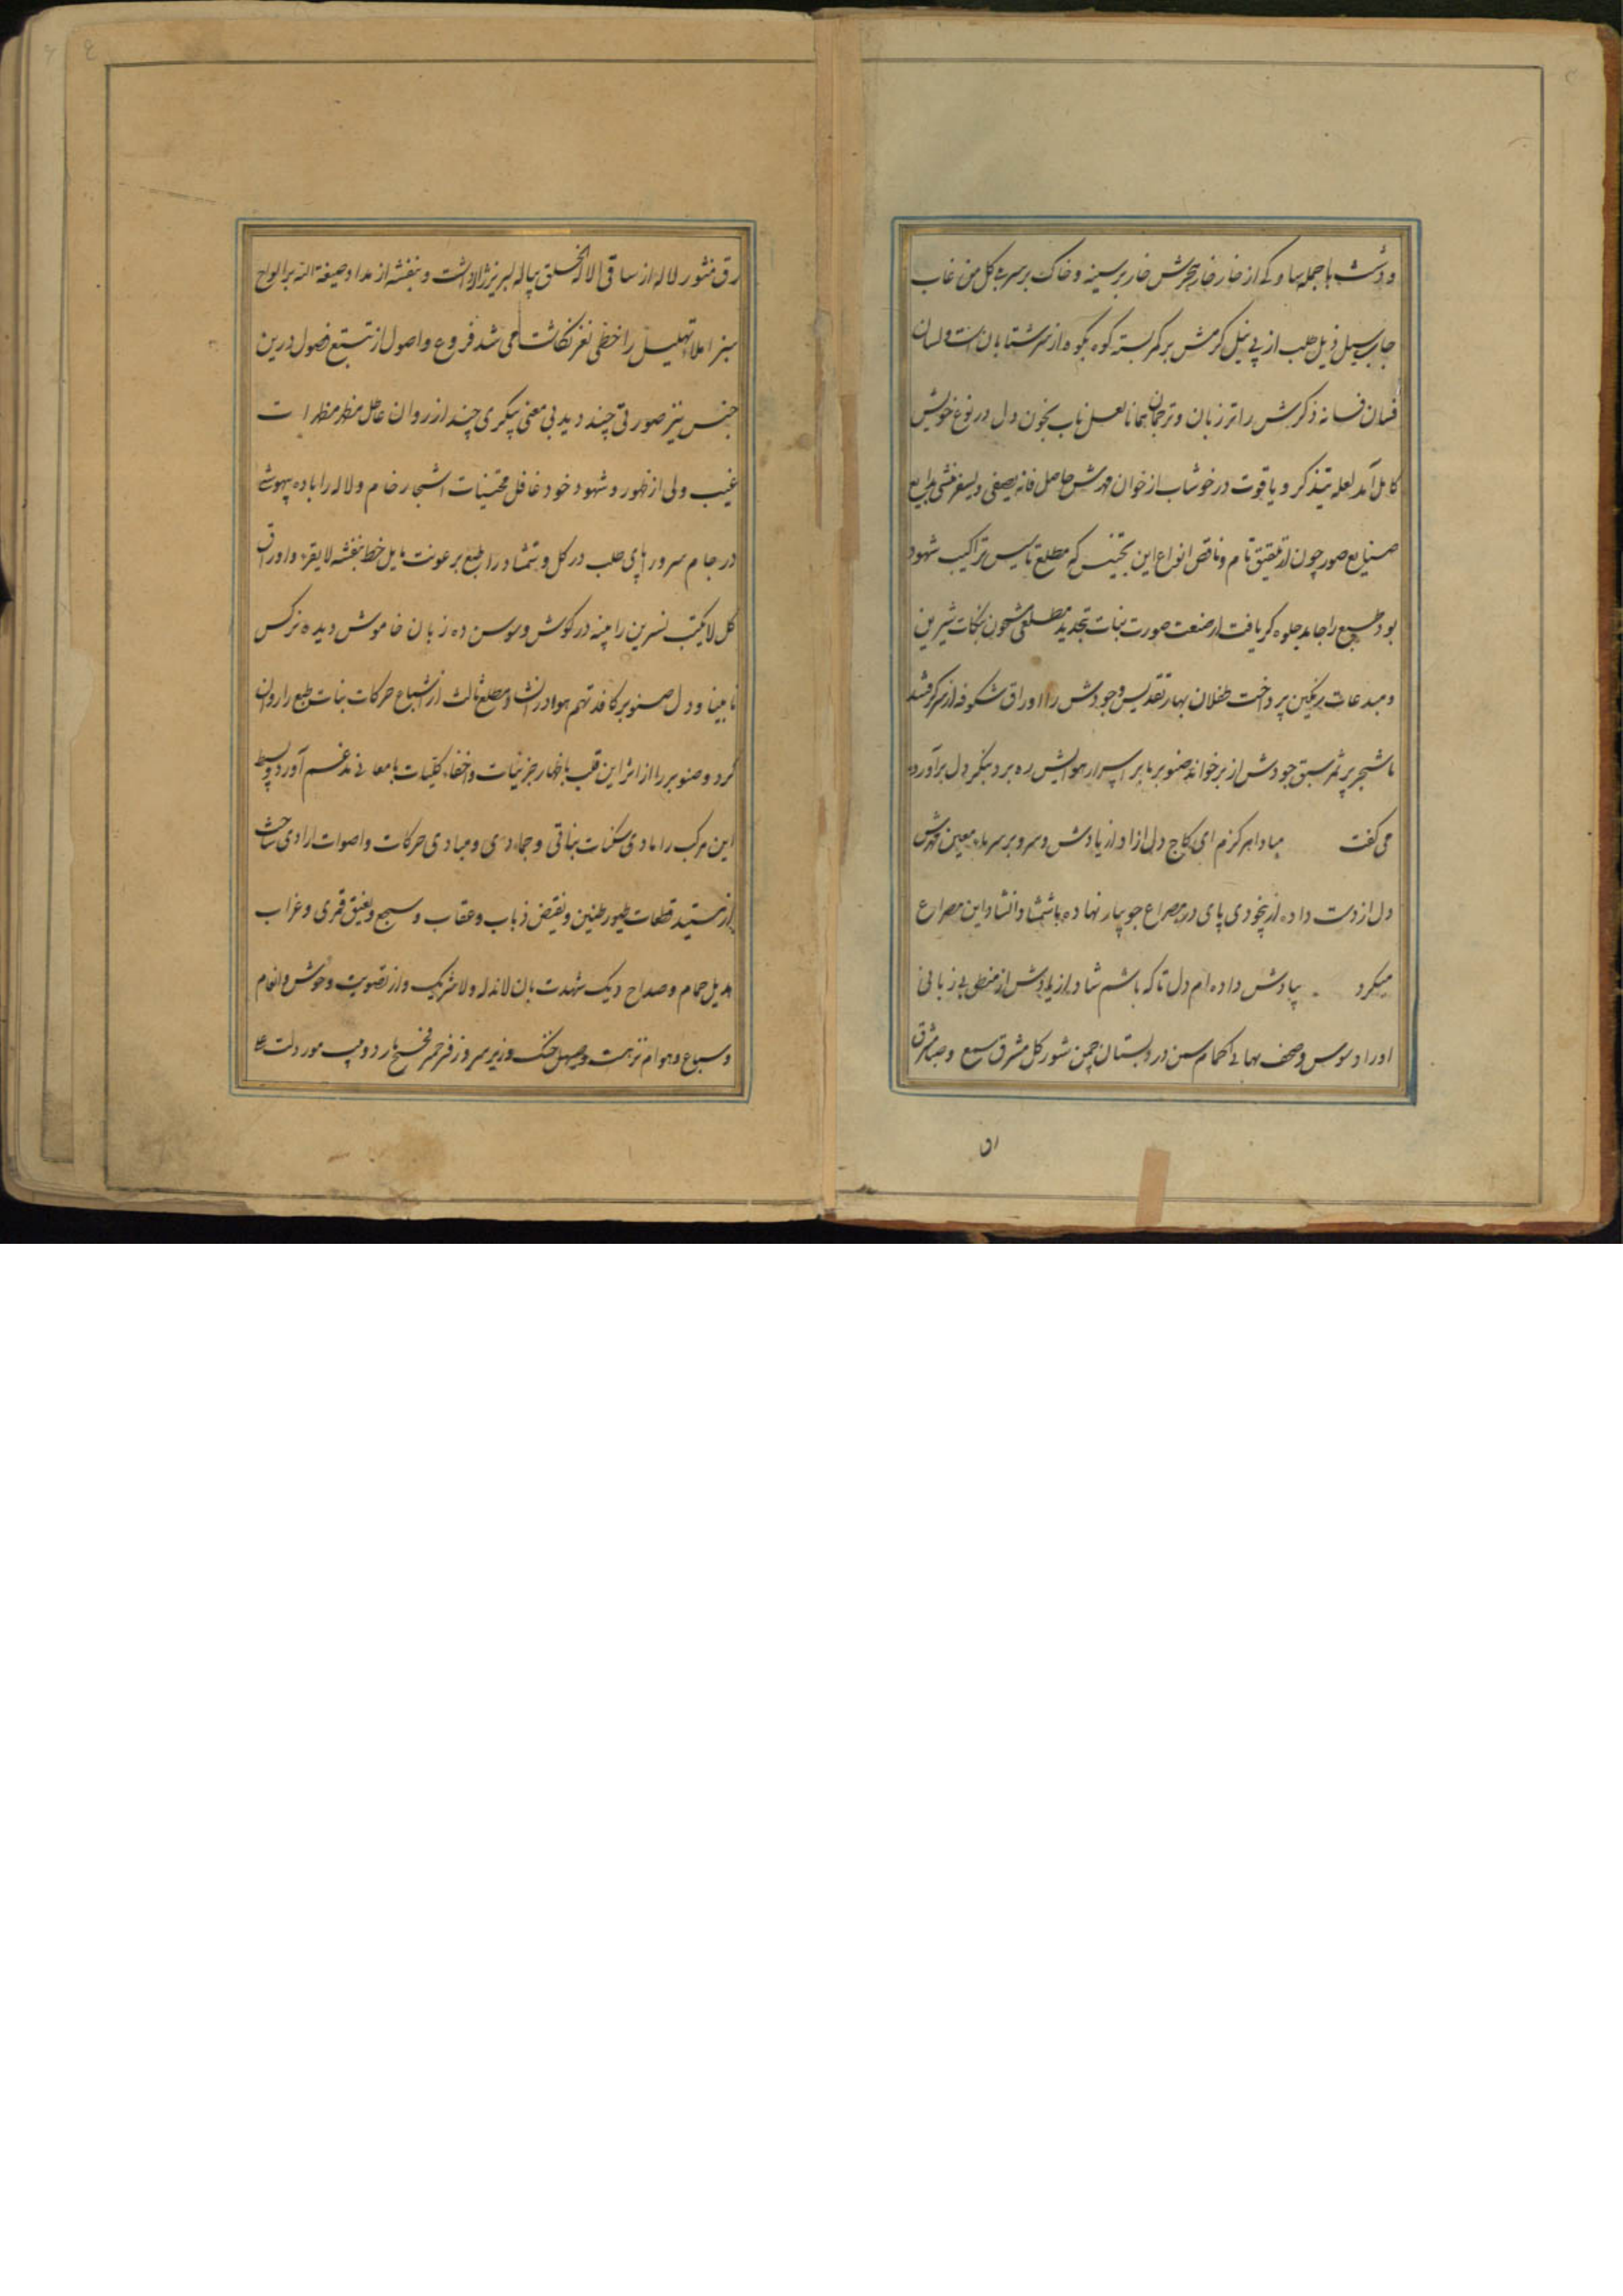 و دشت با جمله ساوکی از خار خار هجرش خار بر سینه و خاک بر سر به کل من غاب
جاب سیل ذیل طلب از پی نیل کرمش بر کمر بسته کوه بکوه از سر شتابان است و لسان
فسان فسانه ذکرش را تر زبان و ترجمان همانا لعل ناب بخون دل در نوع خویش
کامل آمد لعله یتذکر و یاقوت در خوشاب از خوان مهرش حاصل فانه یصفی و یسفر منشی بدایع
صنایع صور چون از تلفیق تام و ناقص انواع این تجنیس که مطلع تاسیس تراکیب شهود
بود طبع را جامد جلوه کر یافت از صنعت صورت بنات تجدید مطلعی مشحون بنکات شیرین
و مبدعات رنکین پرداخت طفلان بهار تقدیس وجودش را اوراق شکوفه از سر کرفتند
تا شجر پر ثمر سبق جودش از بر خواند صنوبر تا بر اسرار هوایش ره برد بیکر دل برآورده
می کفت مبادا هرکزم ای کاج دل ازاد از یادش و سرو بر سر ماء معین مهرش
دل از دست داده از بیخودی پای در مصراع جویبار نهاده با شمشاد انشاد این مصراع
میکرد بیادش داده ام دل تا که باشم شاد از یادش از منطق بی زبانی
اوراد سوسن وصف بهائی کمام سمن در دبستان چمن شور کل مشرق سمیع و صبا شرق
ان
رق منثور لاله از ساقی الا له الخلق پیاله لبریز ژاله داشت و بنفشه از مداد صبغة الله بر الواح
سبز املاء تهلیل را خطی نغز نکاشت می شد فروع و اصول از تتبع فصول درین
جنس نیز صورتی چند دید بی معنی پیکری چند از روان عاطل مظهر مظهر است
غیب ولی از ظهور و شهود خود غافل مجتنیات اشجار خام و لاله را باده بیهوشی
در جام سرو را پای طلب در کل و شمشاد را طبع بر عونت مایل خط بنفشه لا یقرء و اوراق
کل لا یکتب نسرین را پنبه در کوش و سوسن ده زبان خاموش دیده نرکس
نابینا و دل صنوبر کافئدتهم هواء در انشاد مطلع ثالث از اشباع حرکات بنات طبع را روان
کرد و صنوبر را از اثر این قلب باظهار جزئیات و اخفاء کلیات با معانی مدغم آورد و بسط
این مرکب را مادی سکنات نباتی و جمادی و مبادی حرکات و اصوات ارادی ساخت
از نشید قطعات طیور طنین و نقیض ذباب و عقاب و سجع و نعیق قمری و غراب
هدیل حمام و صداح دیک شهدت بان لا ند له و لا شریک و از تصویت وحوش و انعام
و سباع و هوام نزهت و صهیل خنک و زئیر سر و زفر حمر فحیح مار و دبیب مور دلت علی